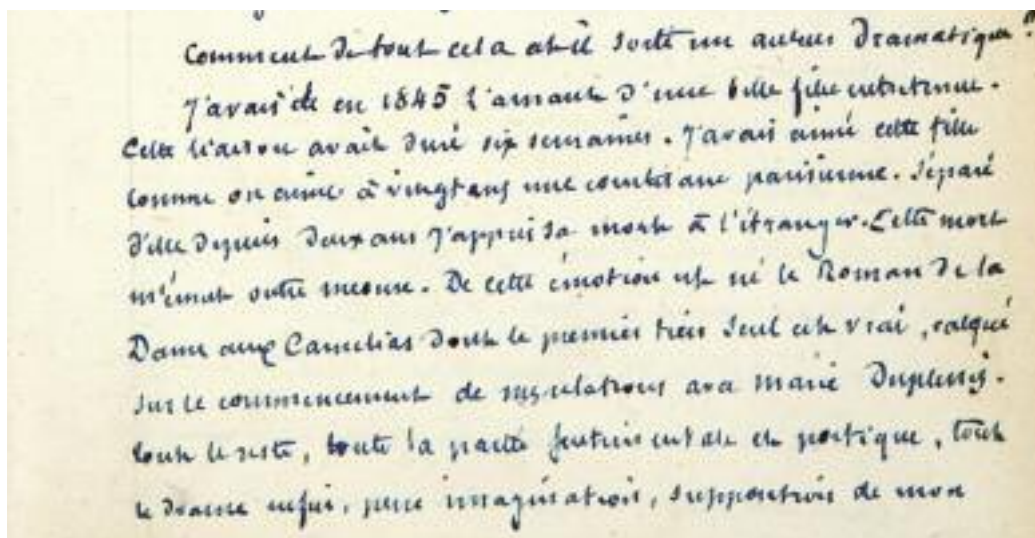 Comment de tout cela est il sorti un auteur Dramatique?
J'avais été en 1845 l'amant d'une belle fille entretenue.
Cette liaison avait duré six semaines. J'avais aimé cette fille
comme on aime à vingt ans une courtisane parisienne. Séparé
d'elle depuis deux ans j'appris sa mort à l'étranger. Cette mort
m'émut outre mesure. De cette émotion est né le Roman de la
Dame aux Camelias dont le premier tiers seul est vrai, calqué
sur le commencement de mes relations avec Marie Duplessis.
tout le reste, toute la partie sentimentale et poétique, tout
le drame enfin, pure imagination, supposition de mon